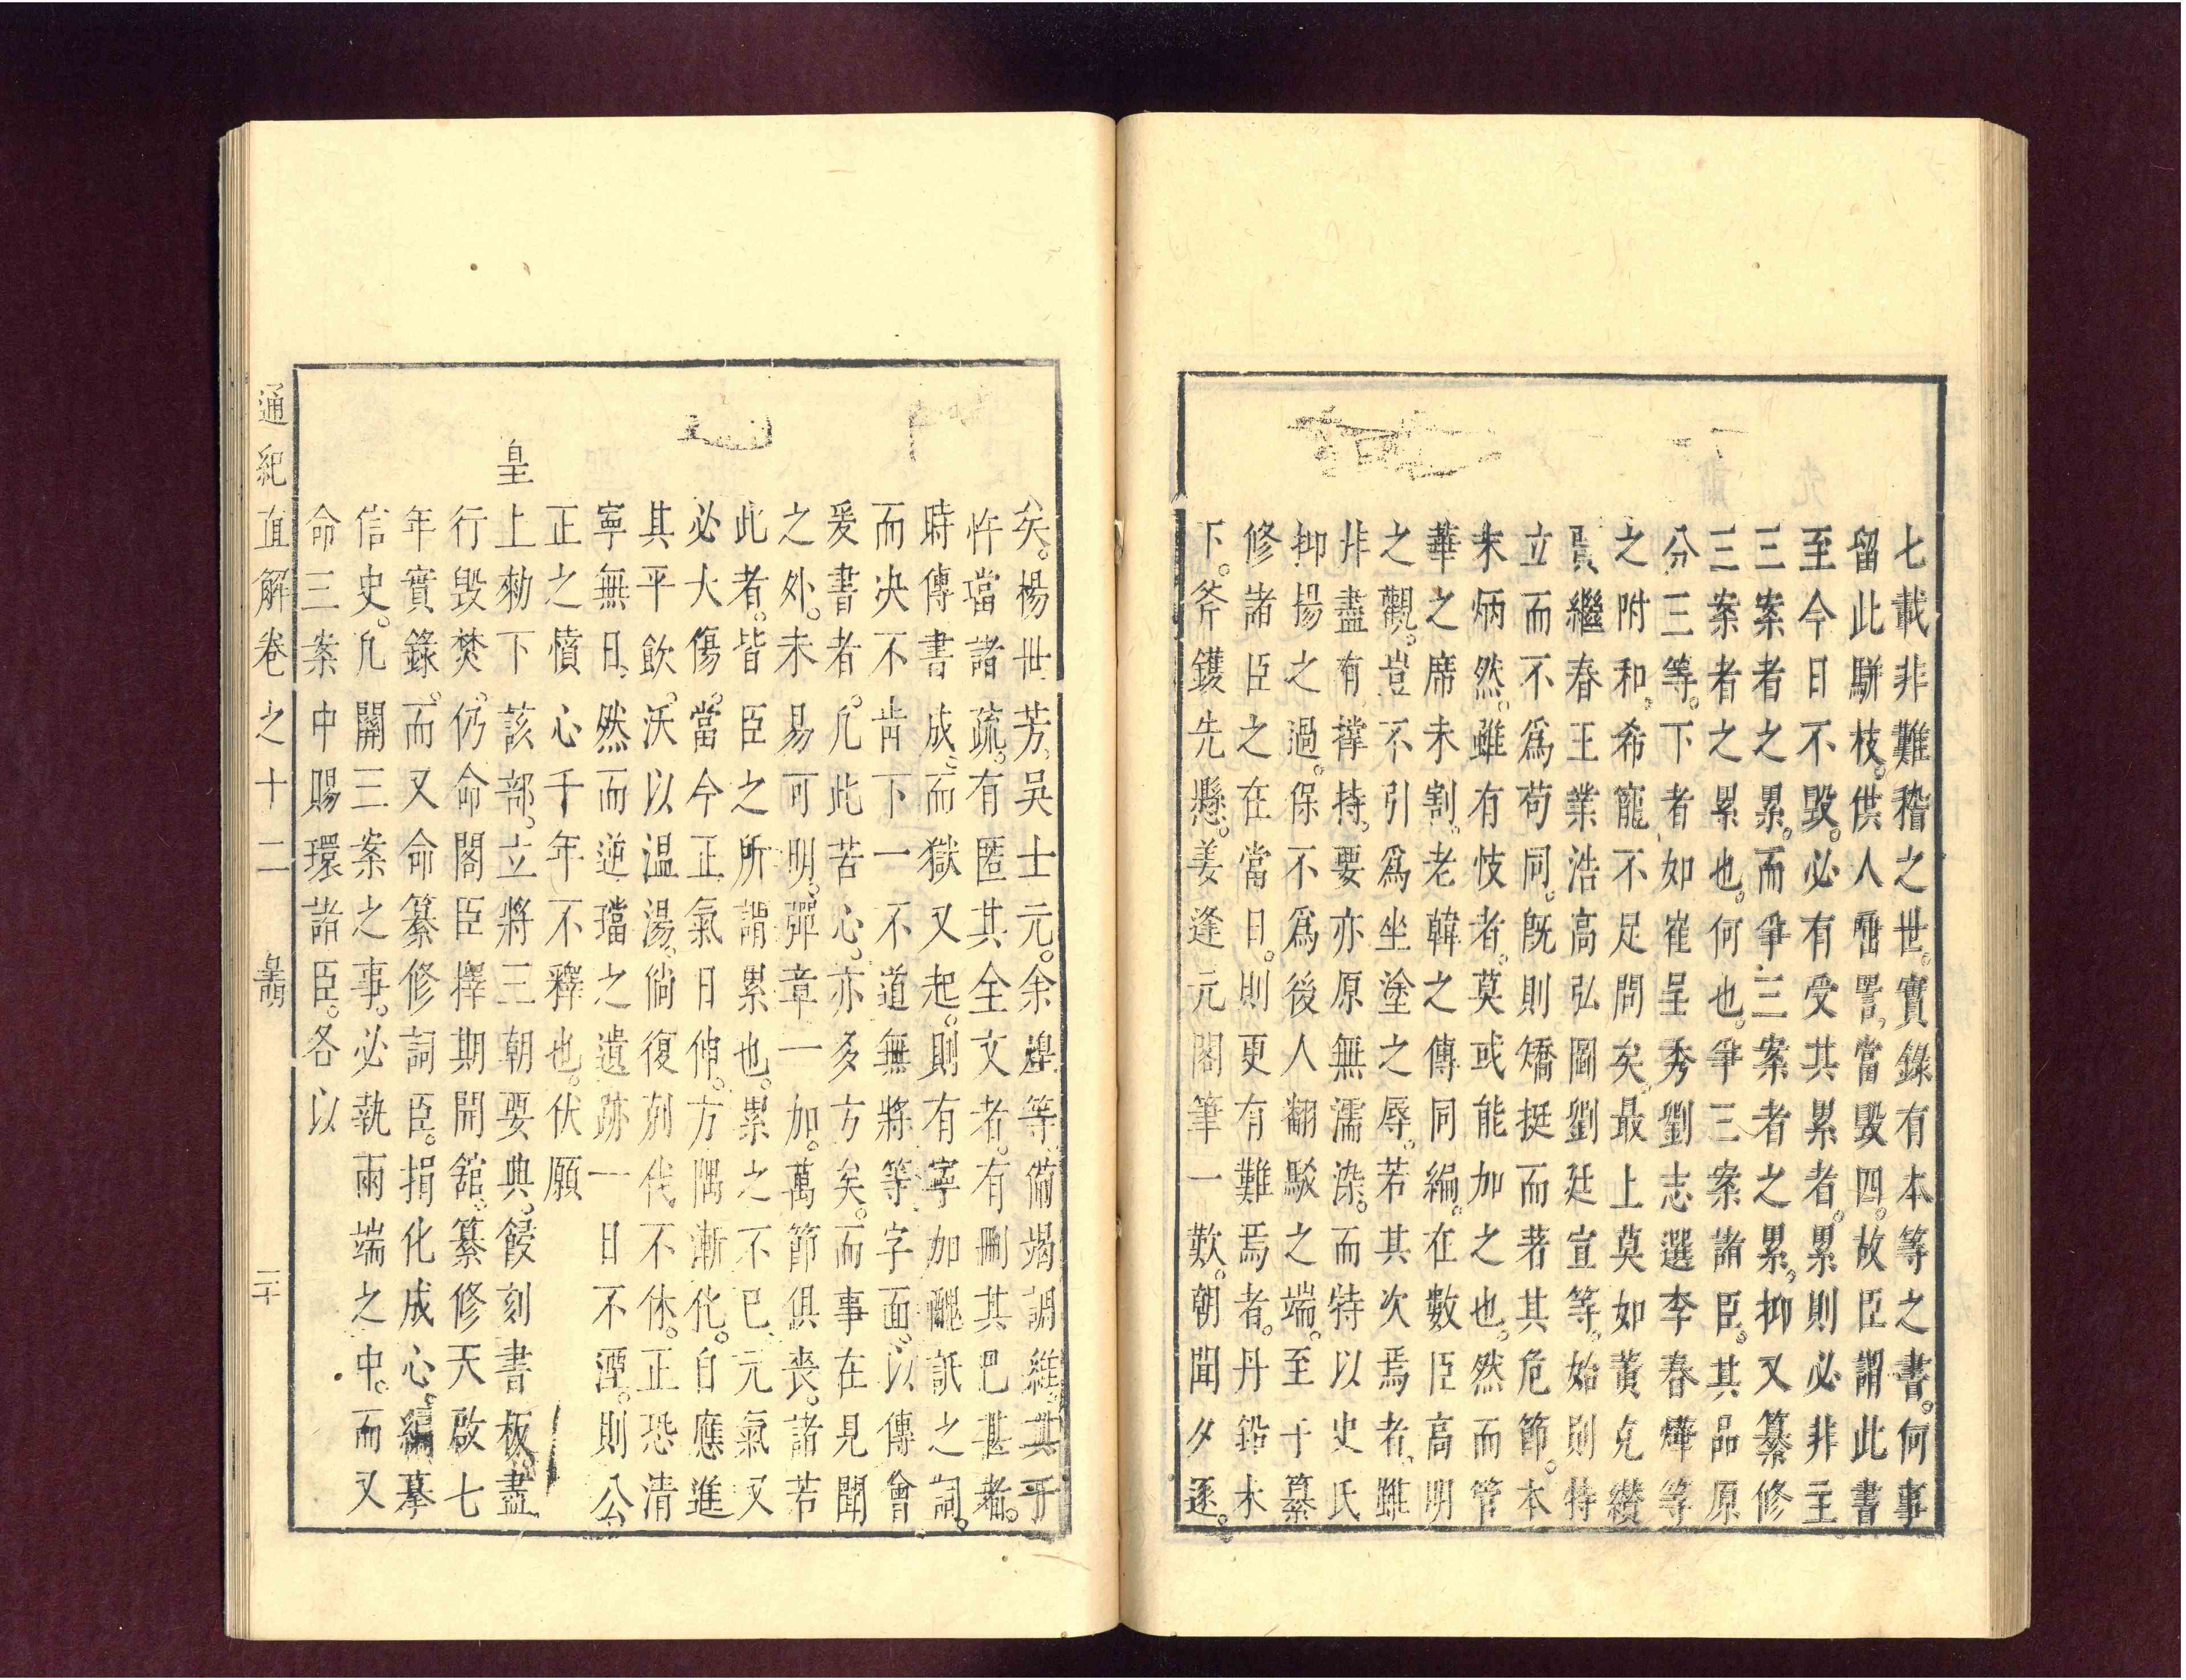 七載非難稽之世。實錄有本等之書。何事
留此駢枝。供人唾詈。當毀四。故臣謂此書
至今日不毀。必有受其累者。累則必非主
三案者之累。而爭三案者之累。抑又纂修
三案者之累也。何也。爭三案諸臣。其品原
分三等。下者如崔呈秀劉志選李春燁等
之附和。希寵不足問矣。最上莫如黃克纘
賈繼春王業浩高弘圖劉廷宣等。始則特
立而不爲苟同。旣則矯挺而著其危節。本
末炳然。雖有忮者。莫或能加之也。然而管
華之席未割。老韓之傳同編。在數臣高明
之觀。豈不引爲坐塗之辱。若其次焉者。雖
非盡有撐持。要亦原無濡染。而特以史氏
抑揚之過。保不爲後人翻駁之端。至于纂
修諸臣之在當日。則更有難焉者。丹鉛未
下。斧鑊先懸。姜逢元閣筆一歎。朝聞夕逐。
矣。楊世芳吳士元。余煌等備竭調維。其于
忤璫諸疏。有匿其全文者。有刪其巳甚者。
時傳書成。而獄又起。則有寧加醜詆之詞。
而决不肯下一不道無將等字面。以傳會
爰書者。凡此苦心。亦多方矣。而事在見聞
之外。未易可明。彈章一加。萬節俱喪。諸若
此者。皆臣之所謂累也。累之不已。元氣又
必大傷。當今正氣日伸。方隅漸化。自應進
其平飲。沃以温湯。倘復刻伐不休。正恐清
寧無日。然而逆璫之遺跡一日不湮。則公
正之憤心千年不釋也。伏願
皇上勑下該部。立將三朝要典。鋟刻書板。盡
行毀焚。仍命閣臣擇期開舘。纂修天啟七
年實錄。而又命纂修詞臣。捐化成心。編摹
信史。凡關三案之事。必執兩端之中。而又
命三案中賜環諸臣。各以
通紀直解卷之十二 皇明 二十